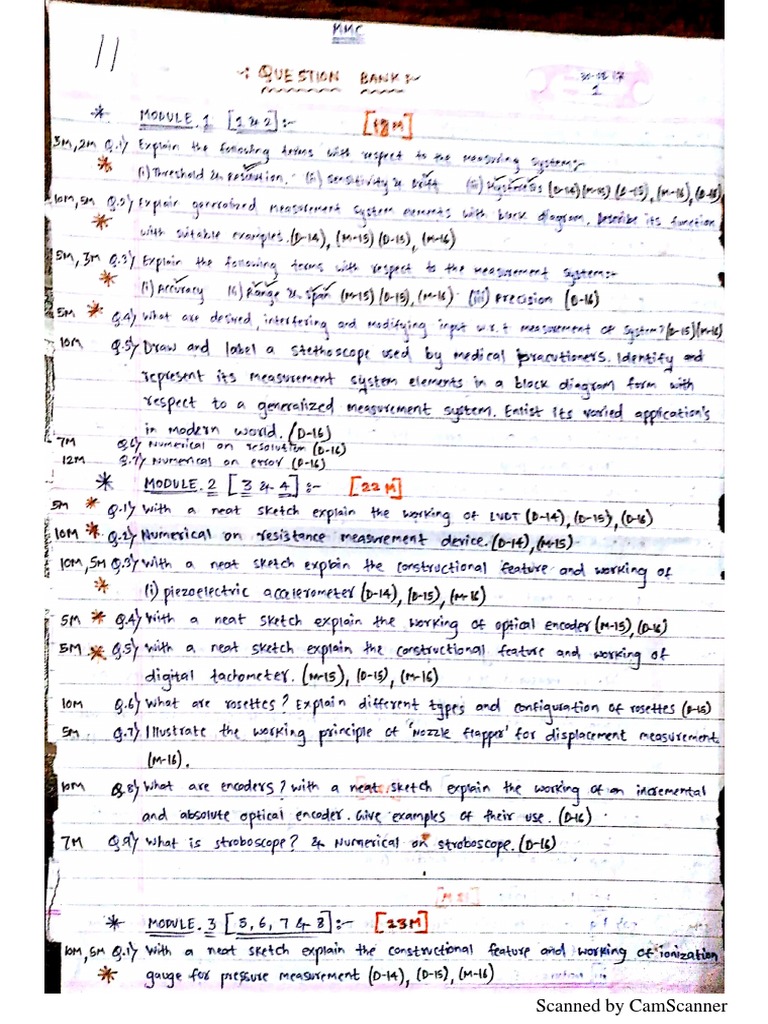 MMC
11
-: QUESTION BANK :-
30-08-17
1
* MODULE.1 [1 & 2]:- [18M]
3M, 2M Q.1) Explain the following terms with respect to the measuring systems:-
* (i) Threshold & Resolution. (ii) Sensitivity & Drift (iii) Hysteresis (D-14)(M-15) (D-15), (M-16), (D-16)
10M, 5M Q.2) Explain generalized measurement system elements with block diagram. Describe its function
* with suitable examples. (D-14), (M-15) (D-15), (M-16)
5M, 3M Q.3) Explain the following terms with respect to the measurement system:-
* (i) Accuracy (ii) Range & span (M-15) (D-15), (M-16) (iii) Precision (D-16)
5M * Q.4) What are desired, interfering and modifying input w.r.t measurement of system? (D-15)(M-16)
10M Q.5) Draw and label a stethoscope used by medical pracutioners. Identify and
represent its measurement system elements in a block diagram form with
respect to a generalized measurement system. Enlist its varied application's
in modern world. (D-16)
7M Q.6) Numerical on resolution (D-16)
12M Q.7) Numerical on error (D-16)
* MODULE.2 [3 & 4]:- [22M]
5M * Q.1) With a neat sketch explain the working of LVDT (D-14), (D-15), (D-16)
10M * Q.2) Numerical on resistance measurement device. (D-14), (M-15)
10M, 5M Q.3) With a neat sketch explain the constructional feature and working of
* (i) piezoelectric accelerometer (D-14), (D-15), (M-16)
5M * Q.4) With a neat sketch explain the working of optical encoder (M-15), (D-16)
5M * Q.5) With a neat sketch explain the constructional feature and working of
digital tachometer. (M-15), (D-15), (M-16)
10M Q.6) What are rosettes? Explain different types and configuration of rosettes (D-15)
5M Q.7) Illustrate the working principle of 'Nozzle flapper' for displacement measurement.
(M-16).
10M Q.8) What are encoders? With a neat sketch explain the working of an incremental
and absolute optical encoder. Give examples of their use. (D-16)
7M Q.9) What is stroboscope? & Numerical on stroboscope. (D-16)
* MODULE.3 [5, 6, 7 & 8]:- [23M]
10M, 5M Q.1) With a neat sketch explain the constructional feature and working of ionization
* gauge for pressure measurement (D-14), (D-15), (M-16)
Scanned by CamScanner